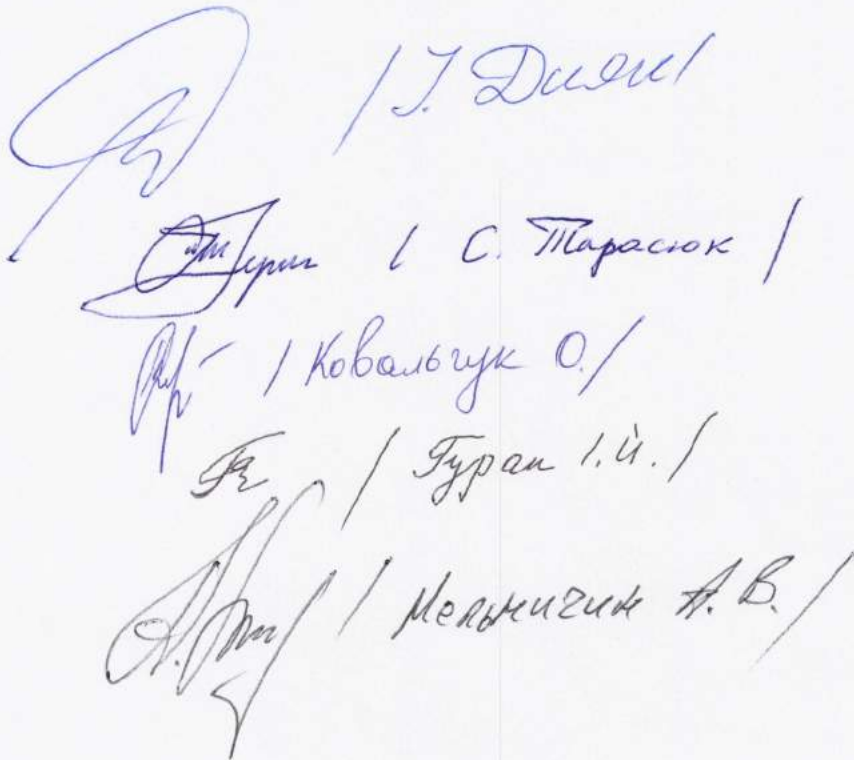 / І. Диян /
/ С. Тарасюк /
/ Ковальчук О. /
/ Гурак І.Й. /
/ Мельничик А. В. /